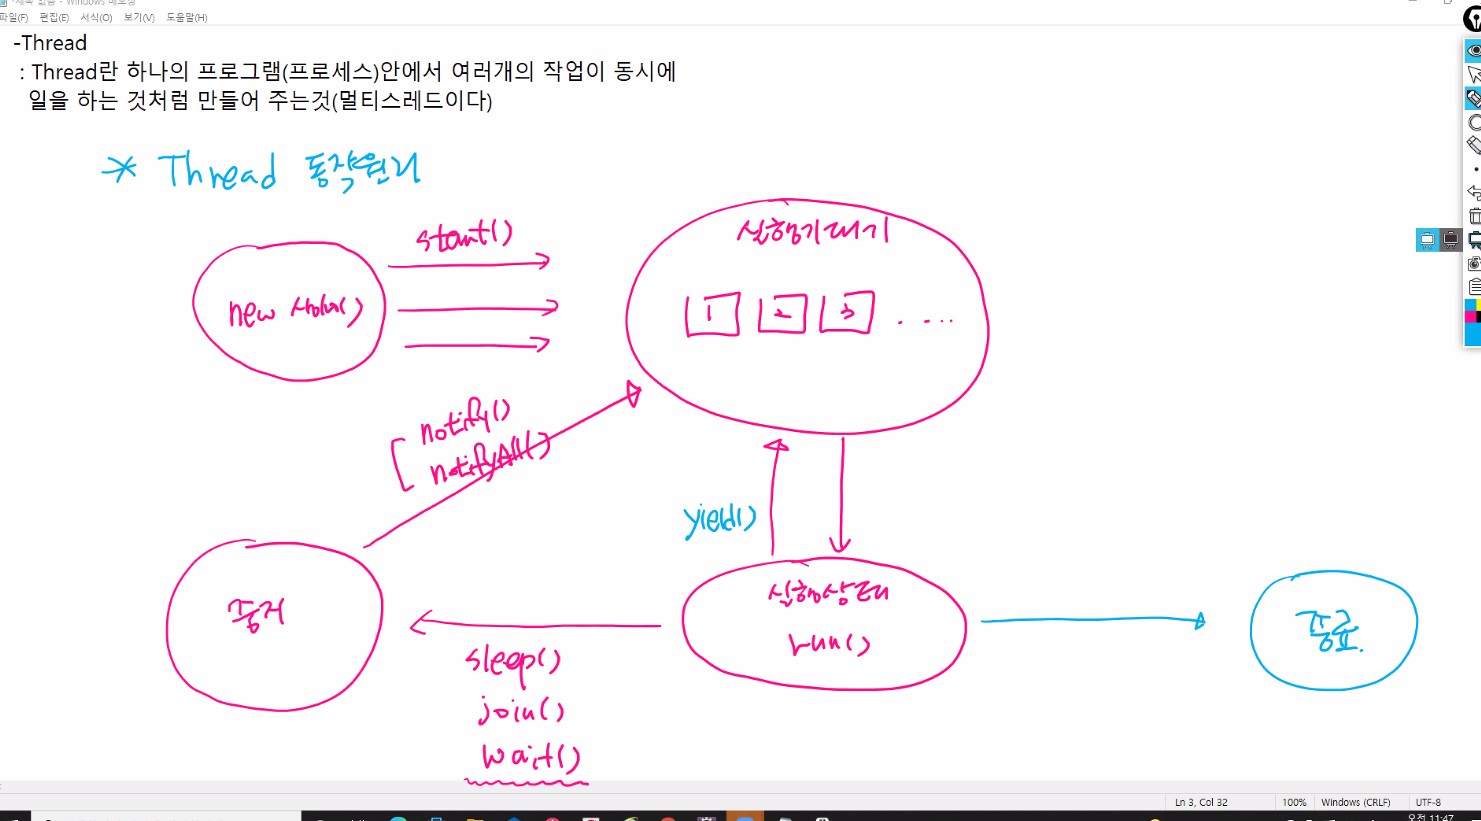 파일(F) 편집(E) 서식(O) 보기(V) 도움말(H)
-Thread
: Thread란 하나의 프로그램(프로세스)안에서 여러개의 작업이 동시에
일을 하는 것처럼 만들어 주는것(멀티스레드이다)
* Thread 동작원리
start()
new
실행대기
1 2 3 .....
notify()
notifyAll()
yield()
실행상태
run()
종료.
sleep()
join()
wait()
Ln 3, Col 32 100% Windows (CRLF) UTF-8
오전 11:47